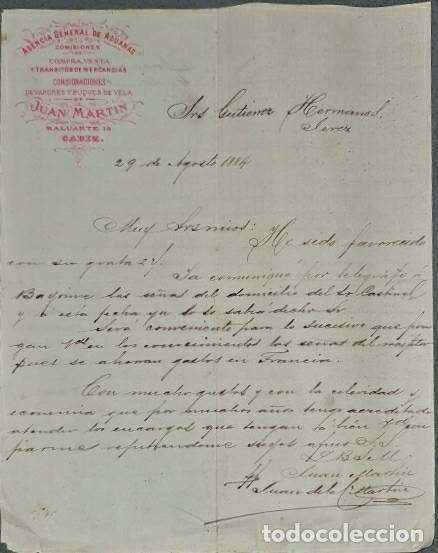 AGENCIA GENERAL DE ADUANAS
COMISIONES
DE
COMPRA, VENTA
Y TRANSITOS DE MERCANCIAS
CONSIGNACIONES
DE VAPORES Y BUQUES DE VELA
DE
JUAN MARTIN
BALUARTE 13
CADIZ.
Srs Gutierrez Hermanos.
Jerez
29 de Agosto 1884
Muy Srs mios: He sido favorecido
con su grata 27/.
Ya comuniqué por telegrafo á
Bayonne las señas del domicilio del Sr
y á esta fecha ya lo sabrá dicho Sr
Será conveniente para lo sucesivo que pon
gan Vds en los conocimientos las señas del receptor
pues se ahorran gastos en Francia.
Con mucho gusto y con la celeridad y
economia que por muchos años tengo acreditado
atender los encargos que tengan á bien Vds con
fiarme repitiendome suyo afmo S.S.
Q B S M
Juan Martin
Juan de la C. Martin
todocoleccion.net